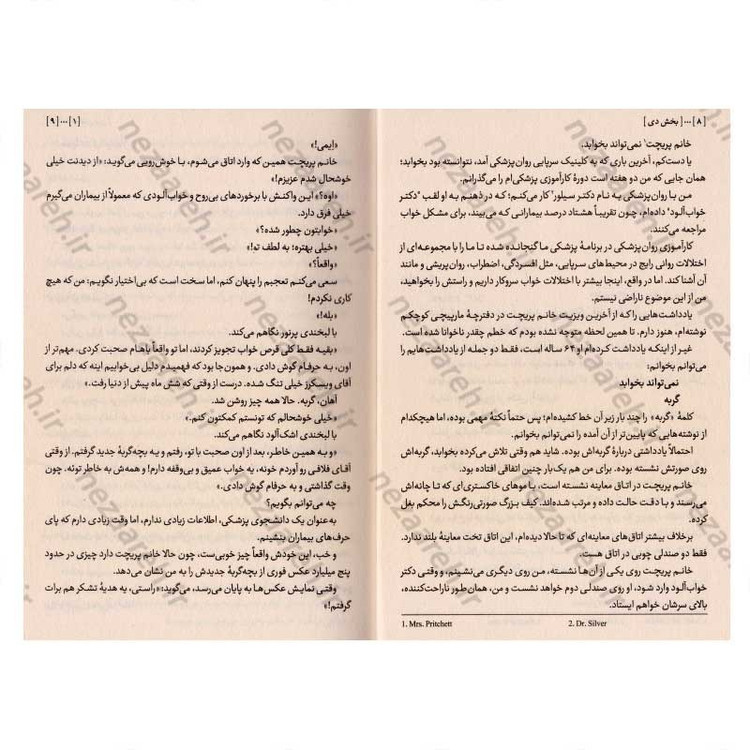 [ ۸ ] ••• [ بخش دی ]
خانم پریچت¹ نمی‌تواند بخوابد.
یا دست‌کم، آخرین باری که به کلینیک سرپایی روان‌پزشکی آمد، نتوانسته بود بخوابد؛
همان جایی که من دو هفته است دورهٔ کارآموزی پزشکی‌ام را می‌گذرانم.
من با روان‌پزشکی به نام دکتر سیلور² کار می‌کنم؛ که در ذهنم به او لقب «دکتر
خواب‌آلود» داده‌ام، چون تقریباً هشتاد درصد بیمارانی که می‌بیند، برای مشکل خواب
مراجعه می‌کنند.
کارآموزی روان‌پزشکی در برنامهٔ پزشکی ما گنجانده شده تا ما را با مجموعه‌ای از
اختلالات روانی رایج در محیط‌های سرپایی، مثل افسردگی، اضطراب، روان‌پریشی و مانند
آن آشنا کند. اما در واقع، اینجا بیشتر با اختلالات خواب سروکار داریم و راستش را بخواهید،
من از این موضوع ناراضی نیستم.
یادداشت‌هایی را که از آخرین ویزیت خانم پریچت در دفترچهٔ مارپیچی کوچکم
نوشته‌ام، هنوز دارم. تا همین لحظه متوجه نشده بودم که خطم چقدر ناخوانا شده است.
غیر از اینکه یادداشت کرده‌ام او ۶۴ ساله است، فقط دو جمله از یادداشت‌هایم را
می‌توانم بخوانم:
نمی‌تواند بخوابد
گربه
کلمهٔ «گربه» را چند بار زیر آن خط کشیده‌ام؛ پس حتماً نکتهٔ مهمی بوده، اما هیچ‌کدام
از نوشته‌هایی که پایین‌تر از آن آمده را نمی‌توانم بخوانم.
احتمالاً یادداشتی دربارهٔ گربه‌اش بوده. شاید هم وقتی تلاش می‌کرده بخوابد، گربه‌اش
روی صورتش نشسته بوده. برای من هم یک‌بار چنین اتفاقی افتاده بود.
خانم پریچت در اتاق معاینه نشسته است، با موهای خاکستری‌ای که تا چانه‌اش
می‌رسند و با دقت حالت داده و مرتب شده‌اند. کیف بزرگ صورتی‌رنگش را محکم بغل
کرده.
برخلاف بیشتر اتاق‌های معاینه‌ای که تا حالا دیده‌ام، این اتاق تخت معاینهٔ بلند ندارد.
فقط دو صندلی چوبی در اتاق هست.
خانم پریچت روی یکی از آن‌ها نشسته، من روی دیگری می‌نشینم، و وقتی دکتر
خواب‌آلود وارد شود، او روی صندلی دوم خواهد نشست و من، همان‌طور ناراحت‌کننده،
بالای سرشان خواهم ایستاد.
1. Mrs. Pritchett
2. Dr. Silver
[ ۱ ] ••• [ ۹ ]
«ایمی!»
خانم پریچت همین که وارد اتاق می‌شوم، با خوش‌رویی می‌گوید: «از دیدنت خیلی
خوشحال شدم عزیزم!»
«اوه؟» این واکنش با برخوردهای بی‌روح و خواب‌آلودی که معمولاً از بیماران می‌گیرم
خیلی فرق دارد.
«خوابتون چطور شده؟»
«خیلی بهتره؛ به لطف تو!»
«واقعاً؟»
سعی می‌کنم تعجبم را پنهان کنم، اما سخت است که بی‌اختیار نگویم: من که هیچ
کاری نکردم!
«بله!»
با لبخندی پرنور نگاهم می‌کند.
«بقیه فقط کلی قرص خواب تجویز کردند، اما تو واقعاً باهام صحبت کردی. مهم‌تر از
اون، به حرفام گوش دادی. و همون‌جا بود که فهمیدم دلیل بی‌خوابیم اینه که دلم برای
آقای ویسکرز خیلی تنگ شده. درست از وقتی که شش ماه پیش از دنیا رفت.»
آهان، گربه. حالا همه چیز روشن شد.
«خیلی خوشحالم که تونستم کمکتون کنم.»
با لبخندی اشک‌آلود نگاهم می‌کند.
«و به همین خاطر، بعد از اون صحبت با تو، رفتم و یه بچه‌گربهٔ جدید گرفتم. از وقتی
آقای فلافی رو آوردم خونه، یه خواب عمیق و بی‌وقفه دارم! و همه‌ش به خاطر توئه. چون
وقت گذاشتی و به حرفام گوش دادی.»
چه می‌توانم بگویم؟
به‌عنوان یک دانشجوی پزشکی، اطلاعات زیادی ندارم، اما وقت زیادی دارم که پای
حرف‌های بیماران بنشینم.
و خب، این خودش واقعاً چیز خوبی‌ست، چون حالا خانم پریچت دارد چیزی در حدود
پنج میلیارد عکس فوری از بچه‌گربهٔ جدیدش را به من نشان می‌دهد.
وقتی نمایش عکس‌ها به پایان می‌رسد، می‌گوید: «راستی، یه هدیهٔ تشکر هم برات
گرفتم!»
nezaareh.ir